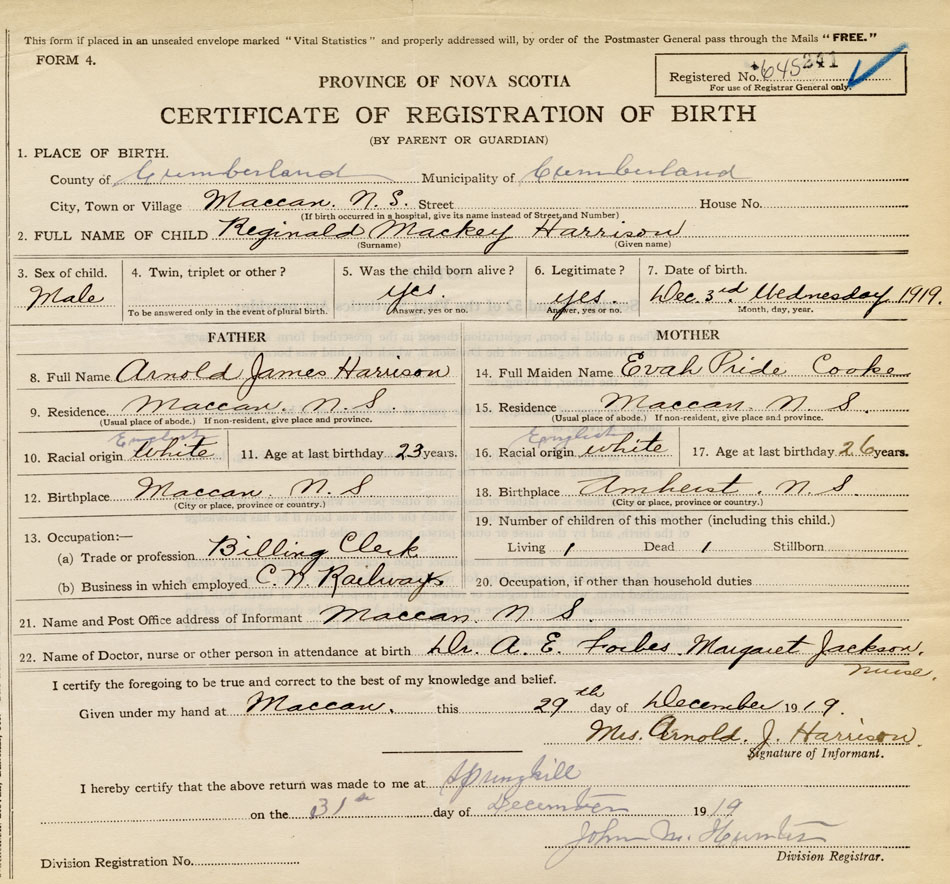 This form if placed in an unsealed envelope marked "Vital Statistics" and properly addressed will, by order of the Postmaster General pass through the Mails "FREE."
FORM 4.
PROVINCE OF NOVA SCOTIA
Registered No. 645241
For use of Registrar General only.
CERTIFICATE OF REGISTRATION OF BIRTH
(BY PARENT OR GUARDIAN)
1. PLACE OF BIRTH.
County of Cumberland Municipality of Cumberland
City, Town or Village Maccan. N. S. Street House No.
(If birth occurred in a hospital, give its name instead of Street and Number)
2. FULL NAME OF CHILD Reginald Mackey Harrison
(Surname) (Given name)
3. Sex of child. 4. Twin, triplet or other? 5. Was the child born alive? 6. Legitimate? 7. Date of birth.
Male yes. yes. Dec. 3rd Wednesday 1919.
To be answered only in the event of plural birth. Answer, yes or no. Answer, yes or no. Month, day, year.
FATHER MOTHER
8. Full Name Arnold James Harrison 14. Full Maiden Name Evah Pride Cooke
9. Residence. Maccan. N. S. 15. Residence Maccan. N. S.
(Usual place of abode.) If non-resident, give place and province. (Usual place of abode.) If non-resident, give place and province.
English English
10. Racial origin White 11. Age at last birthday 23 years. 16. Racial origin white 17. Age at last birthday. 26 years.
12. Birthplace Maccan. N. S. 18. Birthplace Amherst. N. S.
(City or place, province or country.) (City or place, province or country.)
13. Occupation:— 19. Number of children of this mother (including this child.)
(a) Trade or profession Billing Clerk Living 1 Dead 1 Stillborn
(b) Business in which employed C. N. Railways 20. Occupation, if other than household duties
21. Name and Post Office address of Informant Maccan. N. S.
22. Name of Doctor, nurse or other person in attendance at birth Dr. A. E. Forbes. Margaret Jackson.
nurse.
I certify the foregoing to be true and correct to the best of my knowledge and belief.
Given under my hand at Maccan. this 29th day of December 1919.
Mrs. Arnold. J. Harrison.
Signature of Informant.
I hereby certify that the above return was made to me at Springhill
on the 31st day of December 1919
John M. Hunter
Division Registration No. Division Registrar.